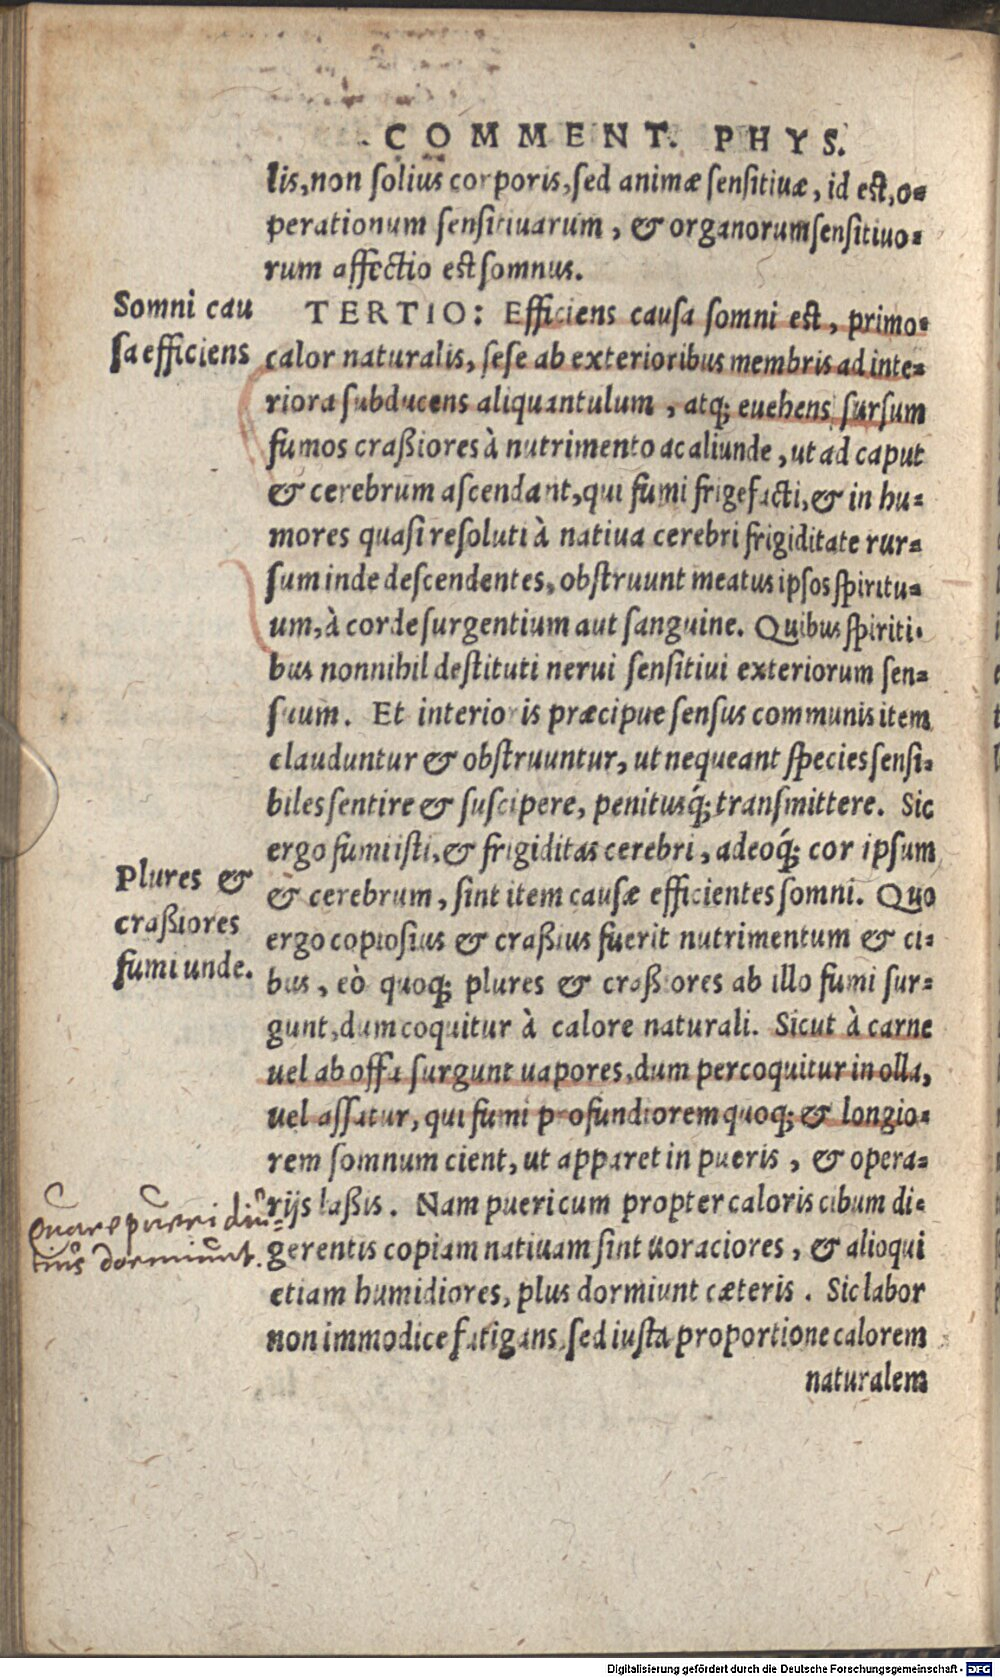 COMMENT. PHYS.
lis, non solius corporis, sed animæ sensitiuæ, id est, o=
perationum sensitiuarum, & organorum sensitiuo=
rum affectio est somnus.
Somni cau
sa efficiens
TERTIO: Efficiens causa somni est, primo=
calor naturalis, sese ab exterioribus membris ad inte=
riora subducens aliquantulum, atq; euehens sursum
fumos craßiores à nutrimento ac aliunde, ut ad caput
& cerebrum ascendant, qui fumi frigefacti, & in hu=
mores quasi resoluti à natiua cerebri frigiditate rur=
sum inde descendentes, obstruunt meatus ipsos spiritu=
um, à corde surgentium aut sanguine. Quibus spiriti=
bus nonnihil destituti nerui sensitiui exteriorum sen=
suum. Et interioris præcipue sensus communis item
clauduntur & obstruuntur, ut nequeant species sensi=
biles sentire & suscipere, penitusq́; transmittere. Sic
ergo fumi isti, & frigiditas cerebri, adeoq́; cor ipsum
& cerebrum, sint item causæ efficientes somni. Quo
Plures &
craßiores
fumi unde.
ergo copiosius & craßius fuerit nutrimentum & ci=
bus, eò quoq; plures & craßiores ab illo fumi sur=
gunt, dum coquitur à calore naturali. Sicut à carne
uel ab offa surgunt uapores, dum percoquitur in olla,
uel assatur, qui fumi profundiorem quoq; & longio=
rem somnum cient, ut apparet in pueris, & opera=
rijs laßis. Nam pueri cum propter caloris cibum di=
Quare pueri diu=
tius dormiunt.
gerentis copiam natiuam sint uoraciores, & alioqui
etiam humidiores, plus dormiunt cæteris. Sic labor
non immodice fatigans, sed iusta proportione calorem
naturalem
Digitalisierung gefördert durch die Deutsche Forschungsgemeinschaft - DFG